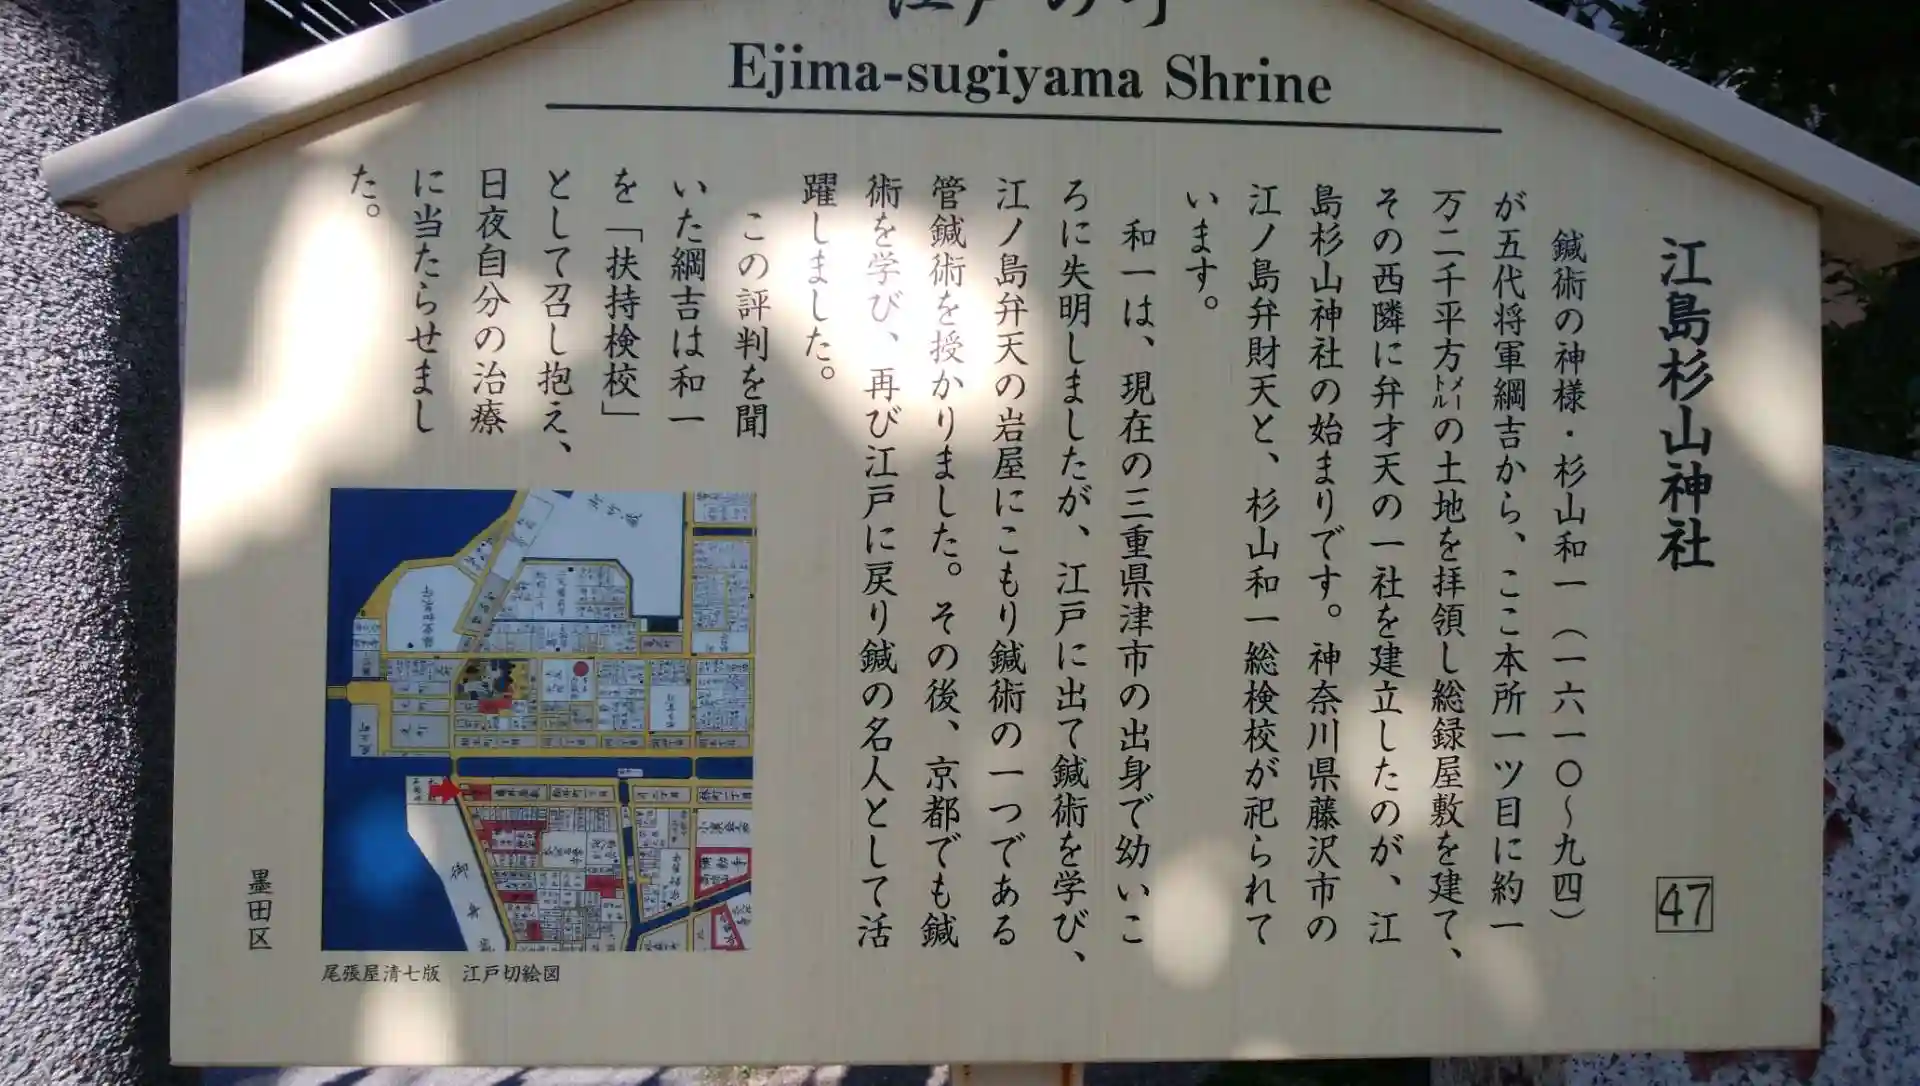 Ejima-sugiyama Shrine
江島杉山神社
47
鍼術の神様・杉山和一(一六一〇〜九四)
が五代将軍綱吉から、ここ本所一ツ目に約一
万二千平方メートルの土地を拝領し総録屋敷を建て、
その西隣に弁才天の一社を建立したのが、江
島杉山神社の始まりです。神奈川県藤沢市の
江ノ島弁財天と、杉山和一総検校が祀られて
います。
和一は、現在の三重県津市の出身で幼いこ
ろに失明しましたが、江戸に出て鍼術を学び、
江ノ島弁天の岩屋にこもり鍼術の一つである
管鍼術を授かりました。その後、京都でも鍼
術を学び、再び江戸に戻り鍼の名人として活
躍しました。
この評判を聞
いた綱吉は和一
を「扶持検校」
として召し抱え、
日夜自分の治療
に当たらせまし
た。
尾張屋清七版 江戸切絵図
墨田区